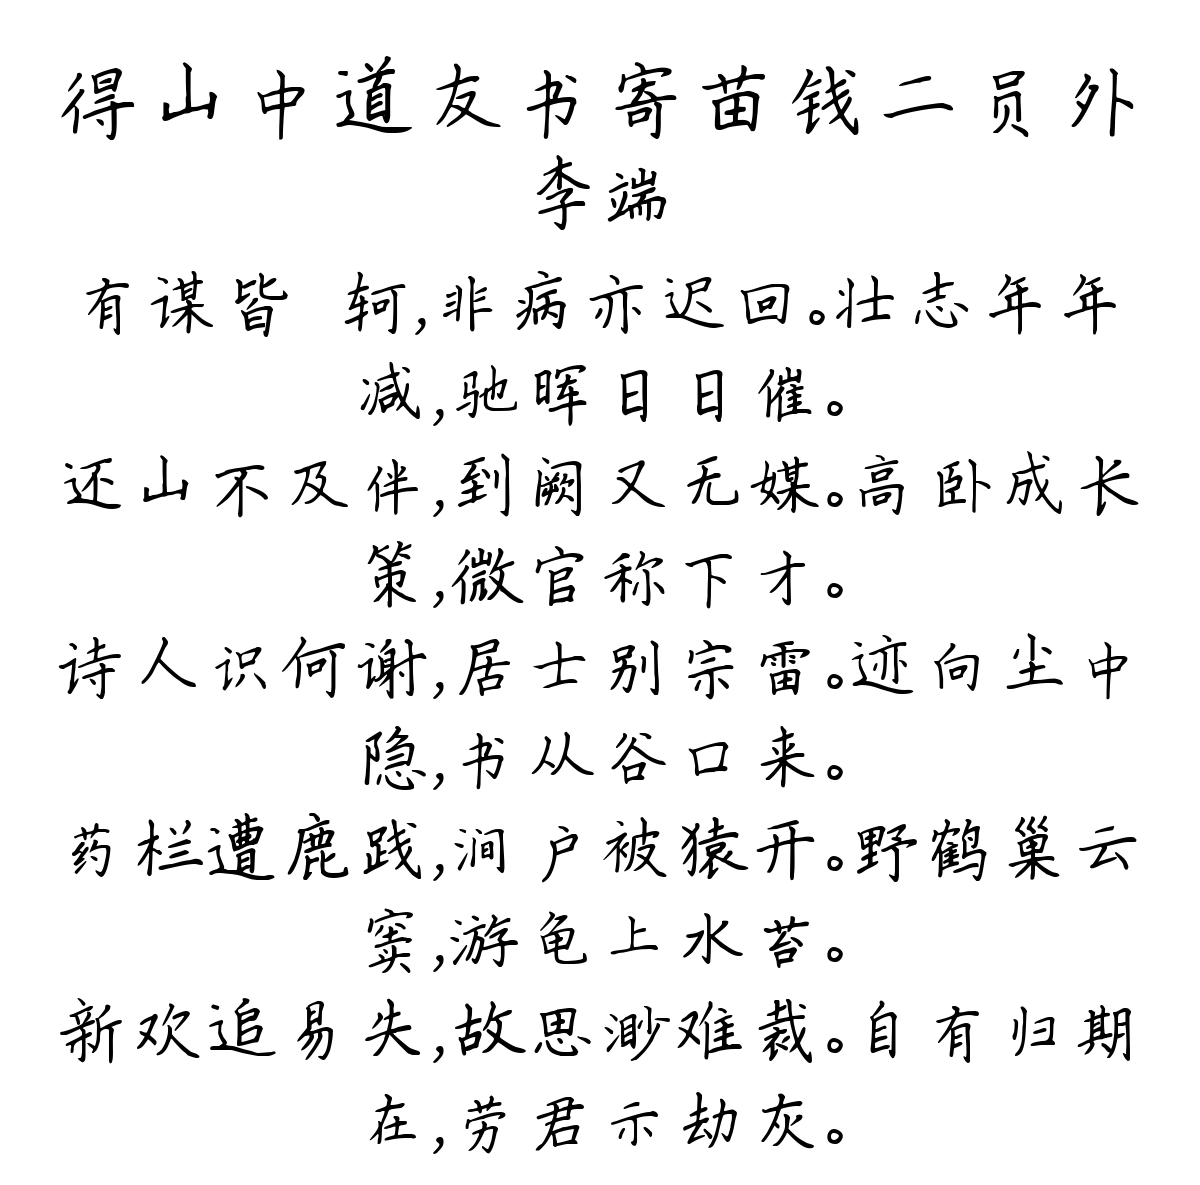 得山中道友书寄苗钱二员外
李端
有谋皆 轲,非病亦迟回。壮志年年
减,驰晖日日催。
还山不及伴,到阙又无媒。高卧成长
策,微官称下才。
诗人识何谢,居士别宗雷。迹向尘中
隐,书从谷口来。
药栏遭鹿践,涧户被猿开。野鹤巢云
窦,游龟上水苔。
新欢追易失,故思渺难裁。自有归期
在,劳君示劫灰。